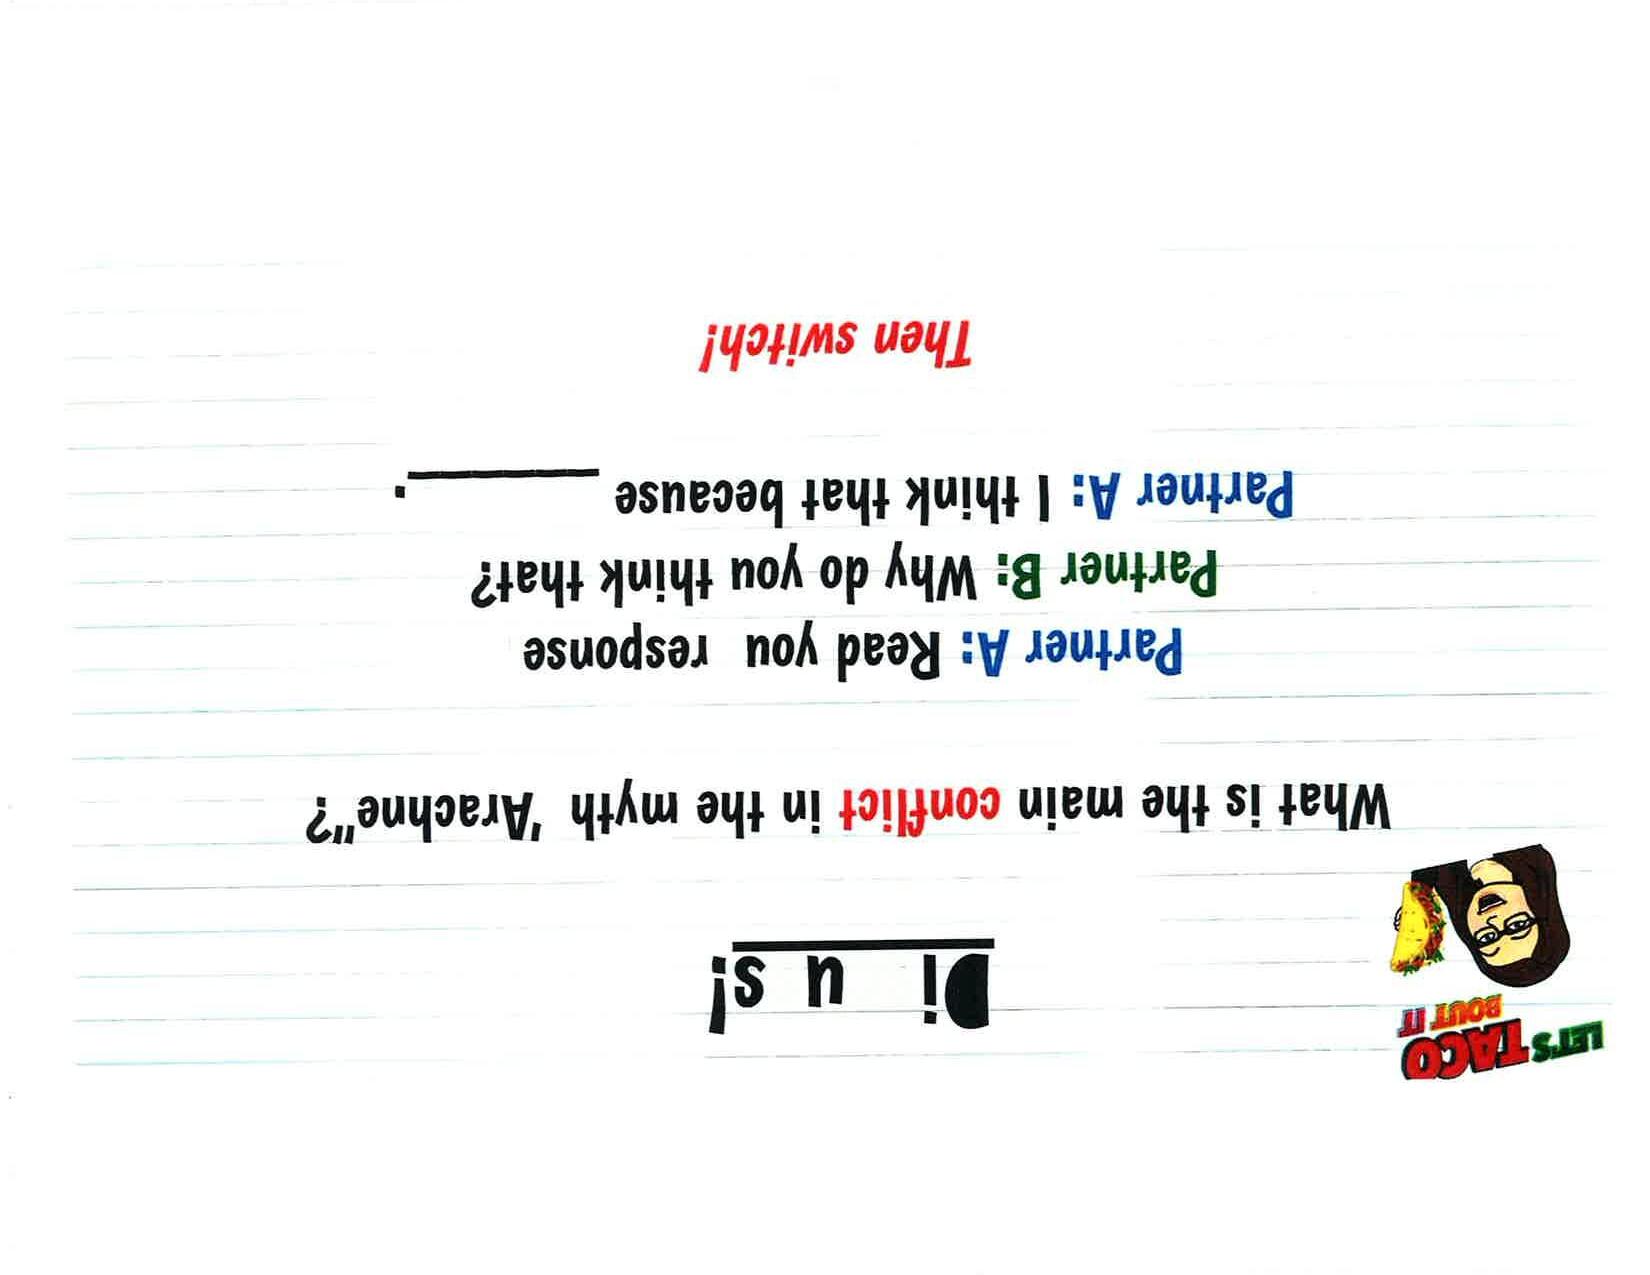 LET'S TACO
BOUT IT
Di u s!
What is the main conflict in the myth "Arachne"?
Partner A: Read you response
Partner B: Why do you think that?
Partner A: I think that because ________.
Then switch!